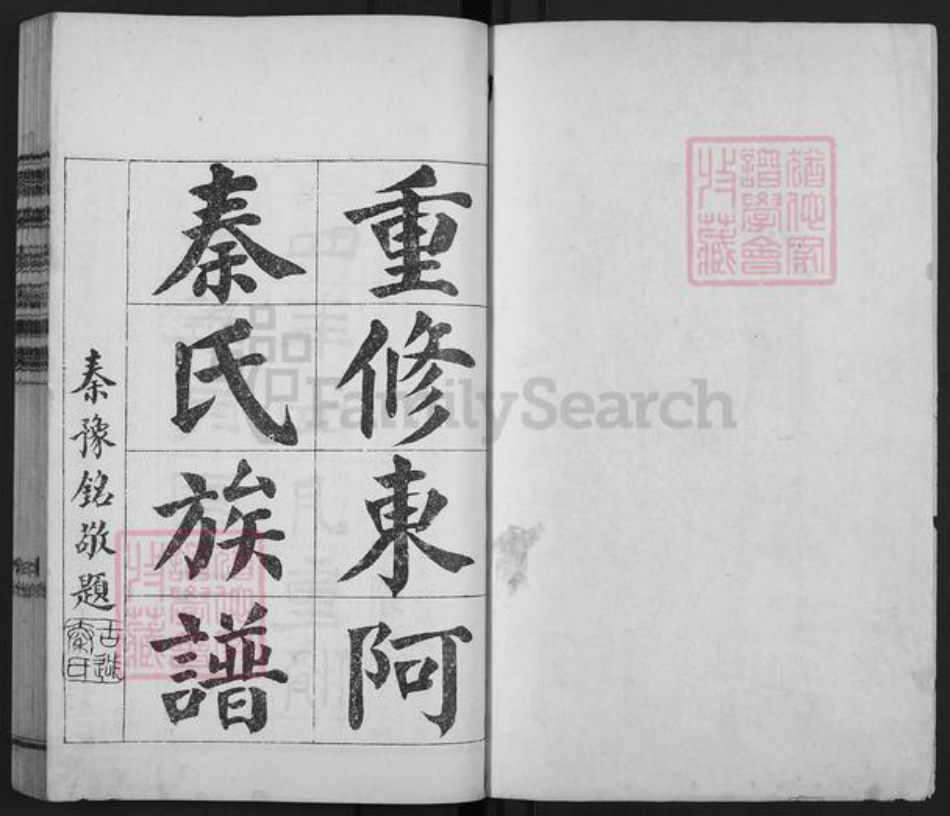 重修東阿
秦氏族譜
秦豫銘敬題
譜學會
收藏
FamilySearch